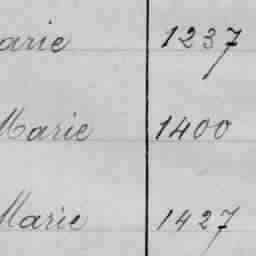 arie 1237
Marie 1400
Marie 1427